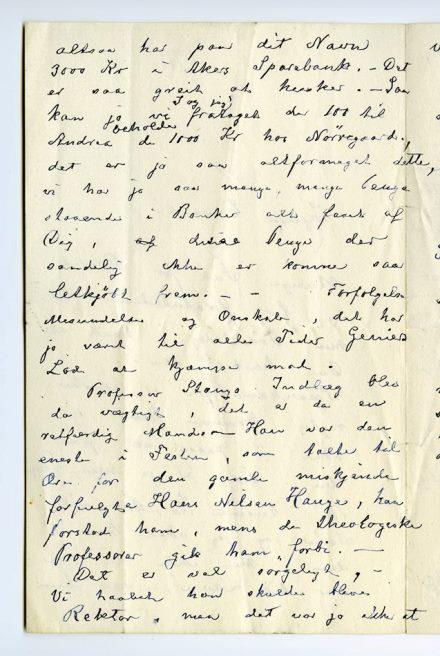 altsaa har paa dit Navn
3000 Kr i Akers Sparebank. – Det
er saa greit at huske. – Saa
kan jo vi frataget de 100 til
I og vi
beholde
Andrea de 1000 Kr hos Nörregaard,
det er jo saa altformeget dette,
vi har jo saa mange, mange Penge
staaende i Banker alt faaet af
Dig, disse Penge der
sandelig ikke er komne saa
letkjöbt frem. – – Forfölgelse
Misundelse og Ondskab, det har
jo været til alle Tider Geniers
Lod at kjæmpe mod.
Professor Stangs Indlæg blev
da vægtigt, det er da en
retfærdig Mand. Han var den
eneste i Festen, som talte til
Ære for den gamle miskjendte
forfulgte Hans Nielsen Hauge, han
forstod ham, mens de theologiske
Professorer gik ham forbi. –
Det er vel sörgeligt, –
Vi haabet han skulde blevet
Rektor, men det var jo ikke at